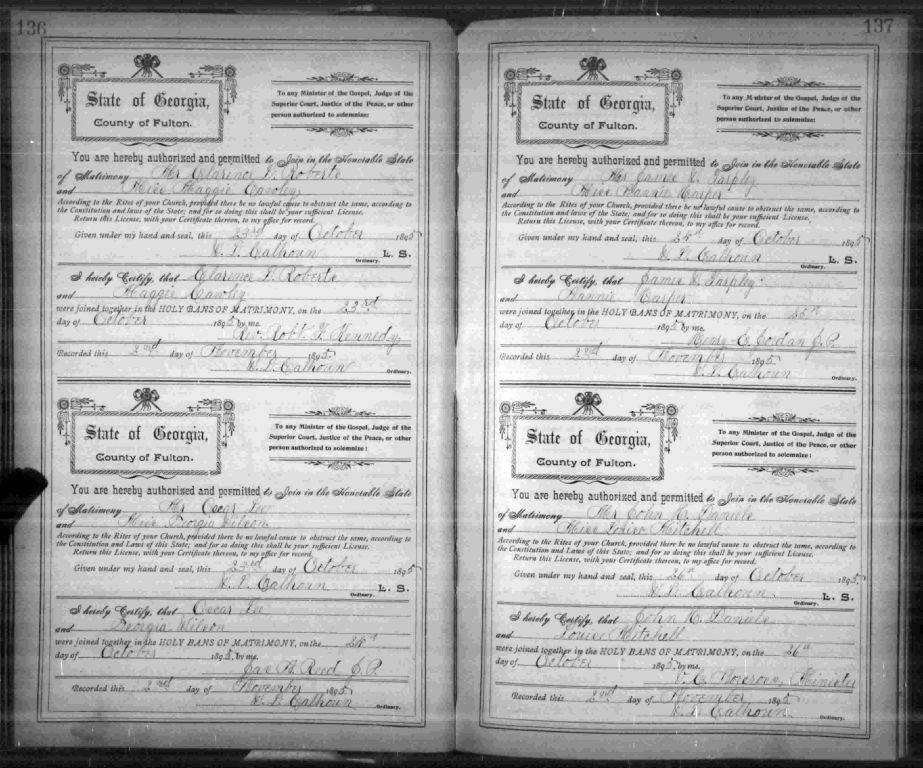 136
State of Georgia,
County of Fulton.
To any Minister of the Gospel, Judge of the
Superior Court, Justice of the Peace, or other
person authorized to solemnize:
You are hereby authorized and permitted to Join in the Honorable State
of Matrimony Mr Clarence F. Roberts
and Miss Maggie Cawley
According to the Rites of your Church, provided there be no lawful cause to obstruct the same, according to
the Constitution and laws of the State; and for so doing this shall be your sufficient License.
Return this License, with your Certificate thereon, to my office for record.
Given under my hand and seal, this 23rd day of October 1895
W. L. Calhoun L. S.
Ordinary.
I hereby Certify, that Clarence F. Roberts
and Maggie Cawley
were joined together in the HOLY BANS OF MATRIMONY, on the 23rd
day of October 1895 by me.
Rev. Robt. F. Kennedy
Recorded this 2nd day of November 1895
W. L. Calhoun
Ordinary.
State of Georgia,
County of Fulton.
To any Minister of the Gospel, Judge of the
Superior Court, Justice of the Peace, or other
person authorized to solemnize:
You are hereby authorized and permitted to Join in the Honorable State
of Matrimony Mr Oscar Lee
and Miss Georgia Wilson
According to the Rites of your Church, provided there be no lawful cause to obstruct the same, according to
the Constitution and Laws of this State; and for so doing this shall be your sufficient License.
Return this License, with your Certificate thereon, to my office for record.
Given under my hand and seal, this 23rd day of October 1895
W. L. Calhoun L. S.
Ordinary.
I hereby Certify, that Oscar Lee
and Georgia Wilson
were joined together in the HOLY BANS OF MATRIMONY, on the
day of October 1895 by me.
Jas. Reed J. P.
Recorded this 2nd day of November 1895
W. L. Calhoun
Ordinary.
137
State of Georgia,
County of Fulton.
To any Minister of the Gospel, Judge of the
Superior Court, Justice of the Peace, or other
person authorized to solemnize:
You are hereby authorized and permitted to Join in the Honorable State
of Matrimony Mr James Tarpley
and Miss Nannie Harper
According to the Rites of your Church, provided there be no lawful cause to obstruct the same, according to
the Constitution and laws of the State; and for so doing this shall be your sufficient License.
Return this License, with your Certificate thereon, to my office for record.
Given under my hand and seal, this day of October 1895
W. L. Calhoun L. S.
Ordinary.
I hereby Certify, that James Tarpley
and Nannie Harper
were joined together in the HOLY BANS OF MATRIMONY, on the
day of October 1895 by me.
Henry E. Jordan J. P.
Recorded this 2nd day of November 1895
W. L. Calhoun
Ordinary.
State of Georgia,
County of Fulton.
To any Minister of the Gospel, Judge of the
Superior Court, Justice of the Peace, or other
person authorized to solemnize:
You are hereby authorized and permitted to Join in the Honorable State
of Matrimony Mr John H. Daniels
and Miss Louise Mitchell
According to the Rites of your Church, provided there be no lawful cause to obstruct the same, according to
the Constitution and Laws of this State; and for so doing this shall be your sufficient License.
Return this License, with your Certificate thereon, to my office for record.
Given under my hand and seal, this 26th day of October 1895
W. L. Calhoun L. S.
Ordinary.
I hereby Certify, that John H. Daniels
and Louise Mitchell
were joined together in the HOLY BANS OF MATRIMONY, on the 26th
day of October 1895 by me.
Minister
Recorded this 2nd day of November 1895
W. L. Calhoun
Ordinary.